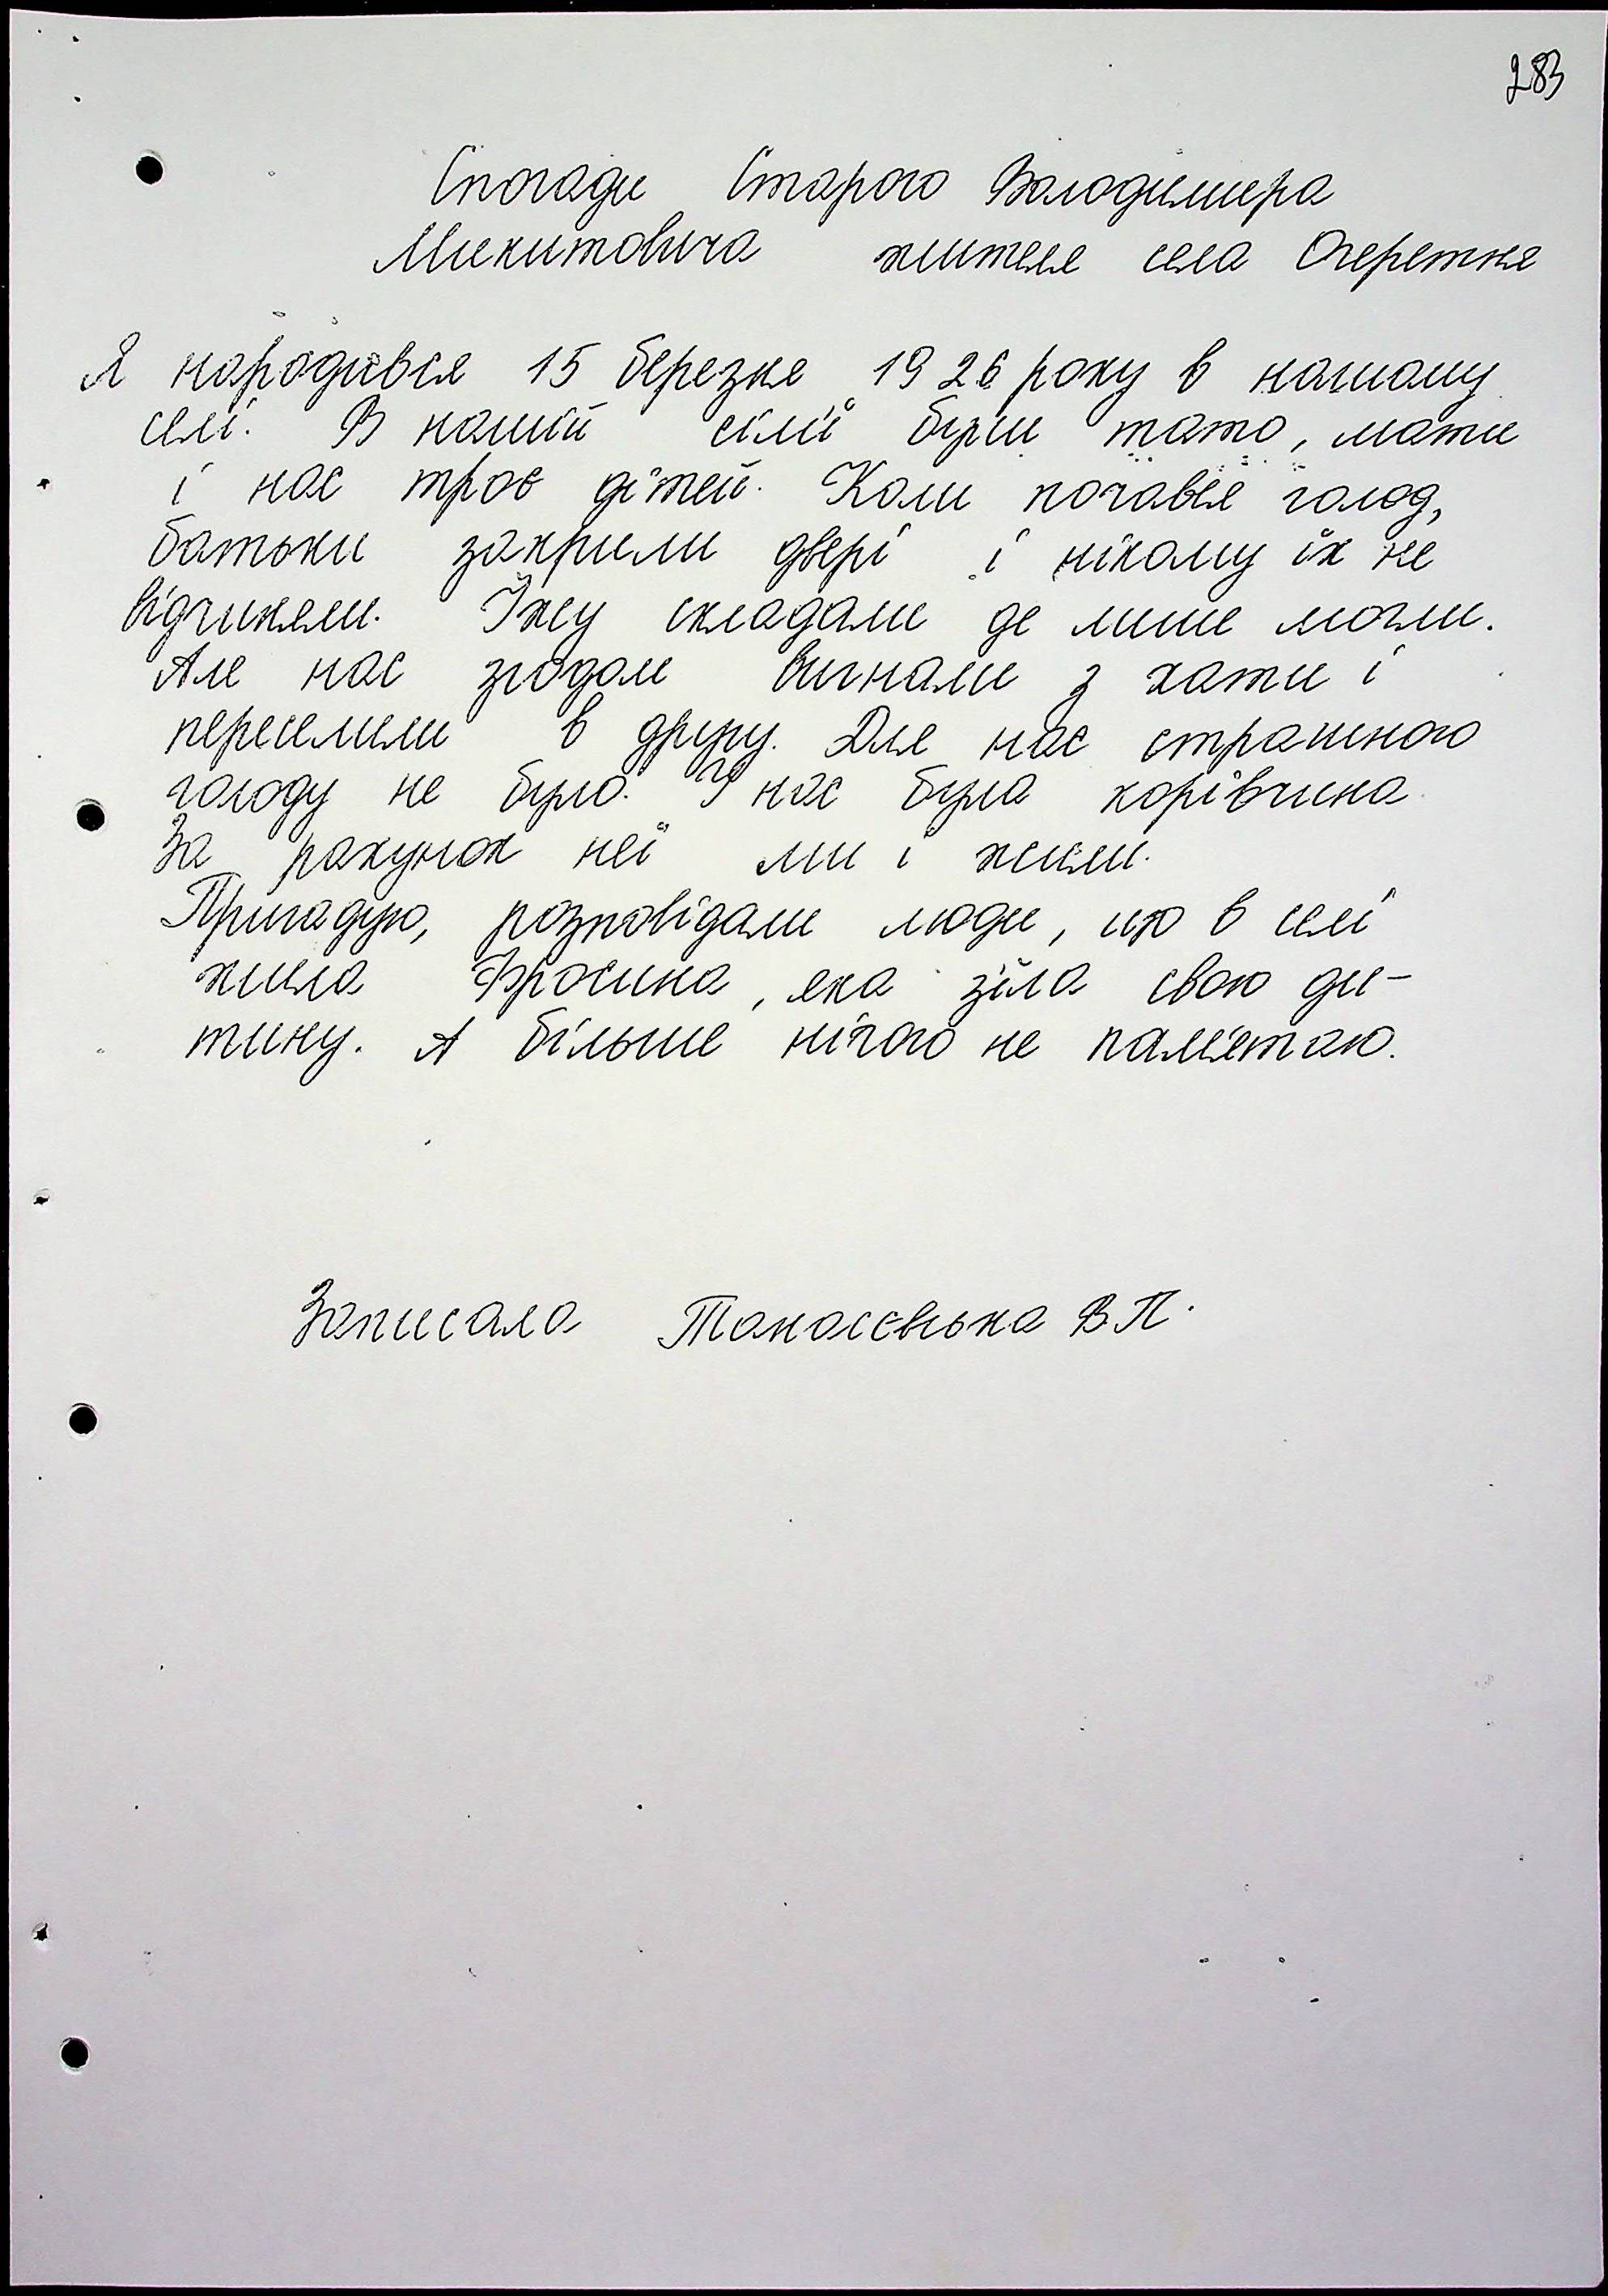 283
Спогади Старого Володимира
Микитовича жителя села Очеретня
Я народився 15 березня 1926 року в нашому
селі. В нашій сім'ї були тато, мати
і нас троє дітей. Коли почався голод,
батьки закрили двері і нікому їх не
відчиняли. Їжу складали де лише могли.
Але нас згодом вигнали з хати і
переселили в другу. Для нас страшного
голоду не було. У нас була корівчина.
За рахунок неї ми і жили.
Пригадую, розповідали люди, що в селі
жила Фросина, яка з'їла свою ди-
тину. А більше нічого не пам'ятаю.
Записала Танасєвська В.П.